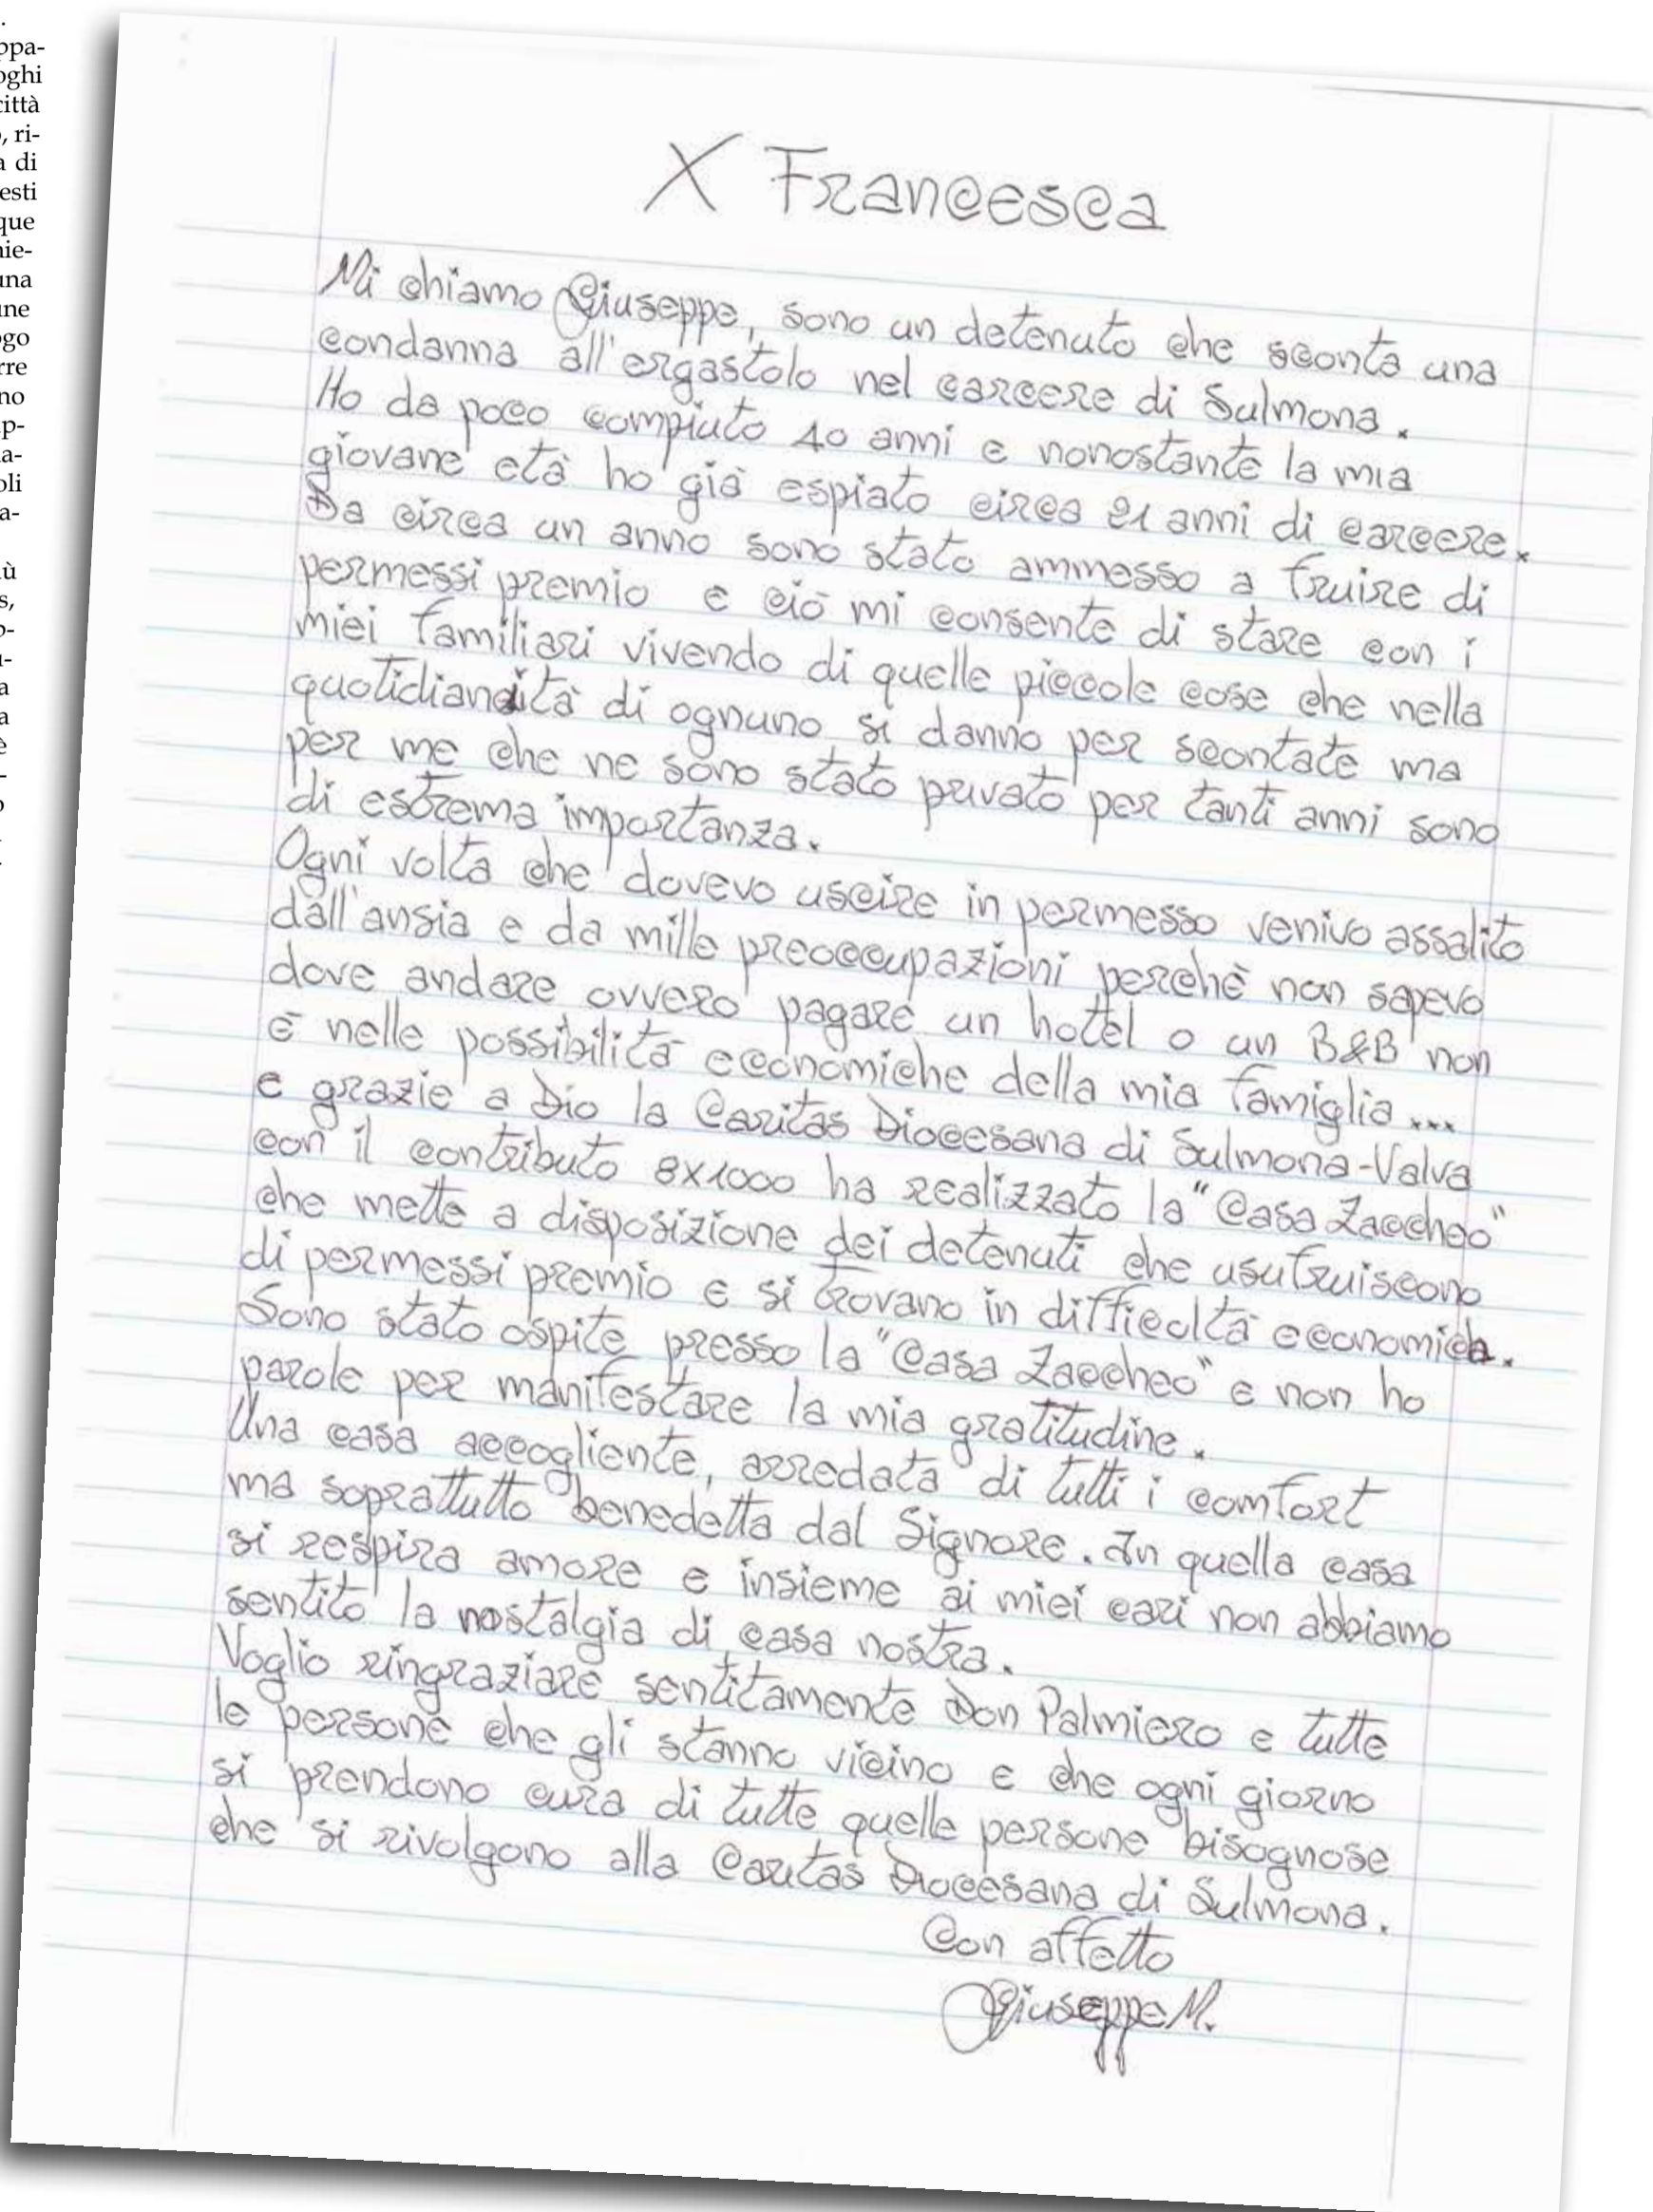 .
ppa-
oghi
città
, ri-
a di
esti
que
nie-
una
une
ogo
rre
no
ip-
a-
oli
a-
ù
s,
o-
u-
a
a
è
-
o
X Francesca
Mi chiamo Giuseppe, sono un detenuto che sconta una
condanna all'ergastolo nel carcere di Sulmona.
Ho da poco compiuto 40 anni e nonostante la mia
giovane età ho già espiato circa 21 anni di carcere.
Da circa un anno sono stato ammesso a fruire di
permessi premio e ciò mi consente di stare con i
miei familiari vivendo di quelle piccole cose che nella
quotidianità di ognuno si danno per scontate ma
per me che ne sono stato privato per tanti anni sono
di estrema importanza.
Ogni volta che dovevo uscire in permesso venivo assalito
dall'ansia e da mille preoccupazioni perchè non sapevo
dove andare ovvero pagare un hotel o un B&B non
è nelle possibilità economiche della mia famiglia...
e grazie a Dio la Caritas Diocesana di Sulmona-Valva
con il contributo 8x1000 ha realizzato la "Casa Zaccheo"
che mette a disposizione dei detenuti che usufruiscono
di permessi premio e si trovano in difficoltà economica.
Sono stato ospite presso la "Casa Zaccheo" e non ho
parole per manifestare la mia gratitudine.
Una casa accogliente, arredata di tutti i comfort
ma soprattutto benedetta dal Signore. In quella casa
si respira amore e insieme ai miei cari non abbiamo
sentito la nostalgia di casa nostra.
Voglio ringraziare sentitamente Don Palmiero e tutte
le persone che gli stanno vicino e che ogni giorno
si prendono cura di tutte quelle persone bisognose
che si rivolgono alla Caritas Diocesana di Sulmona.
Con affetto
Giuseppe M.